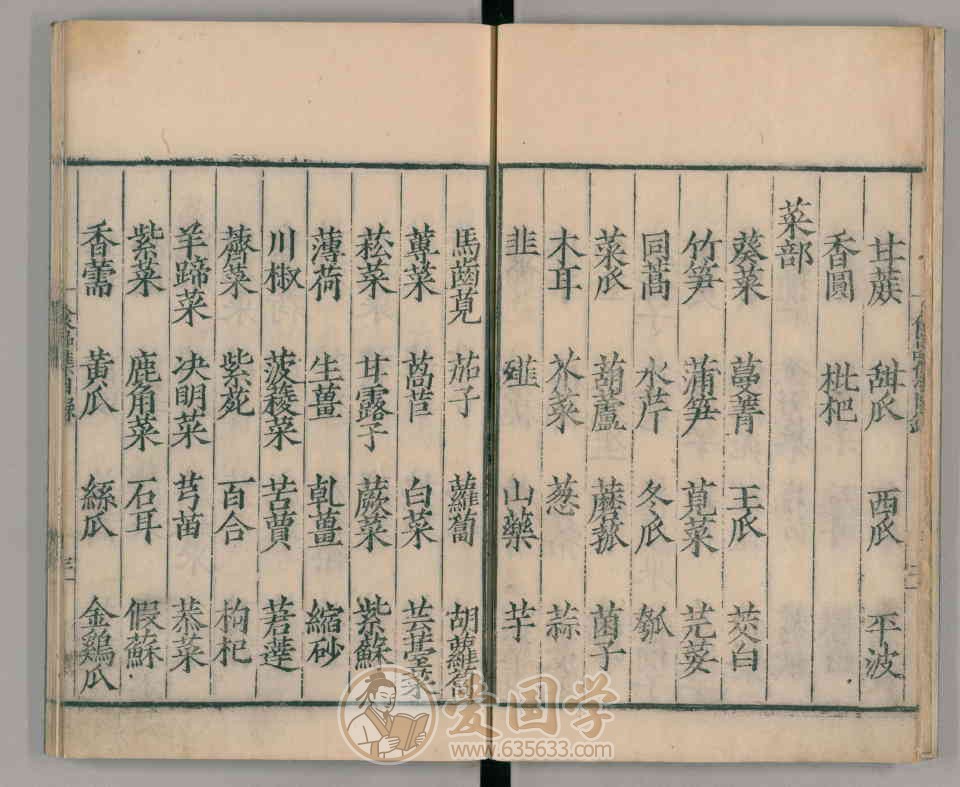 甘蔗 甜瓜 西瓜 平波
香圓 枇杷
菜部
葵菜 蔓菁 王瓜 茭白
竹笋 蒲笋 莧菜 芫荽
同蒿 水芹 冬瓜 瓠
菜瓜 葫蘆 蘑菰 菌子
木耳 芥菜 葱 蒜
韭 䪥 山藥 芋
馬齒莧 茄子 蘿蔔 胡蘿蔔
蓴菜 萵苣 白菜 芸薹菜
菘菜 甘露子 蕨菜 紫蘇
薄荷 生薑 乹薑 縮砂
川椒 菠薐菜 苦蕒 莙薘
薺菜 紫菀 百合 枸杞
羊蹄菜 决明菜 芎苗 菾菜
紫菜 鹿角菜 石耳 假蘇
香薷 黃瓜 絲瓜 金鷄瓜
食品集目錄
三
爱国学
www.635633.com